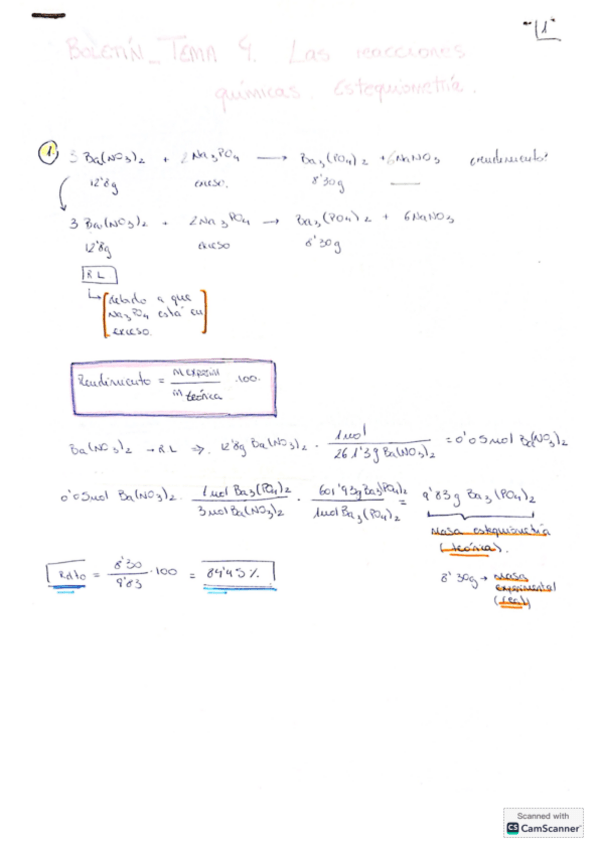 "1"
BOLETÍN_TEMA 4. Las reacciones
químicas. Estequiometría.
1. 3 Ba(NO3)2 + 2 Na3PO4 → Ba3(PO4)2 + 6 NaNO3 ¿rendimiento?
12'8g exceso. 8'30g —
3 Ba(NO3)2 + 2 Na3PO4 → Ba3(PO4)2 + 6 NaNO3
12'8g exceso 8'30g
RL
↳ debido a que
Na3PO4 está en
exceso.
Rendimiento = m experim / m teórica · 100.
Ba(NO3)2 → RL ⇒ 12'8g Ba(NO3)2 · 1mol / 261'3g Ba(NO3)2 = 0'05mol Ba(NO3)2
0'05mol Ba(NO3)2 · 1mol Ba3(PO4)2 / 3mol Ba(NO3)2 · 601'93g Ba3(PO4)2 / 1mol Ba3(PO4)2 = 9'83g Ba3(PO4)2
Masa estequiométria
(teórica).
Rdto = 8'30 / 9'83 · 100 = 84'45%
8'30g → Masa
experimental
(real)
Scanned with
CS CamScanner